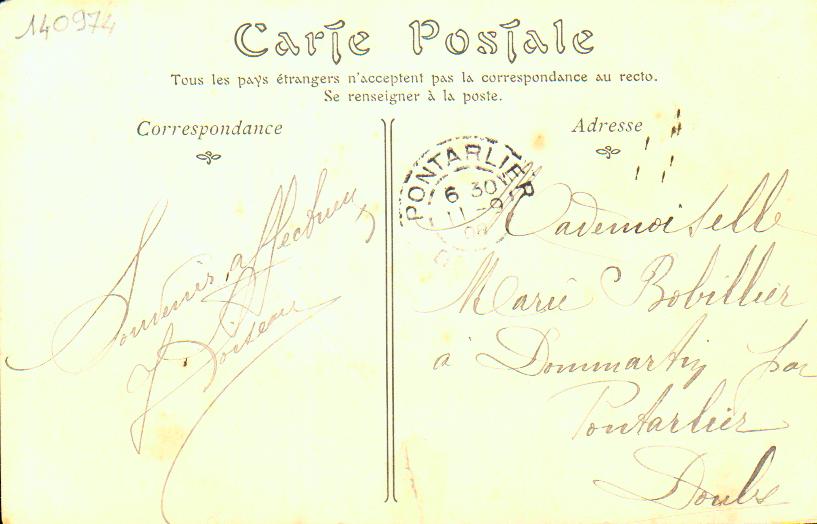 140974
Carte Postale
Tous les pays étrangers n'acceptent pas la correspondance au recto.
Se renseigner à la poste.
Correspondance
Souvenir affectueux
Adresse
PONTARLIER
6 30
11 -9
Mademoiselle
Marie Bobillier
à Dommartin par
Pontarlier
Doubs